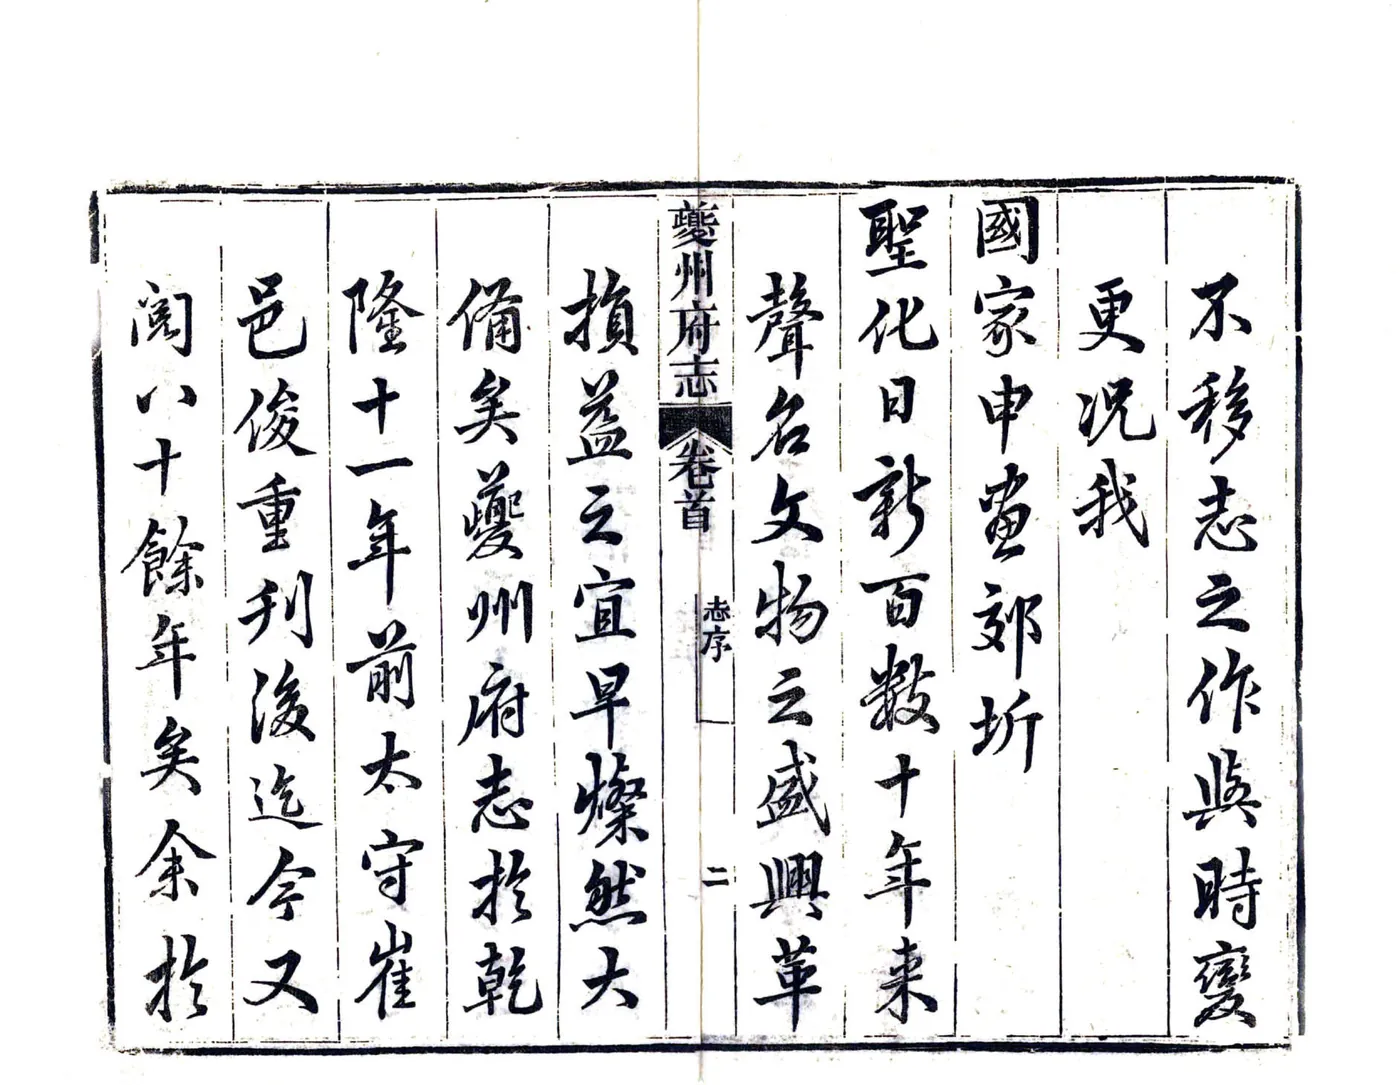 不移志之作與時變
更况我
國家申畫郊圻
聖化日新百數十年来
聲名文物之盛興革
夔州府志
卷首
志序
二
損益之宜早燦然大
備矣夔州府志於乾
隆十一年前太守崔
邑俊重刋後迄今又
閲八十餘年矣余於